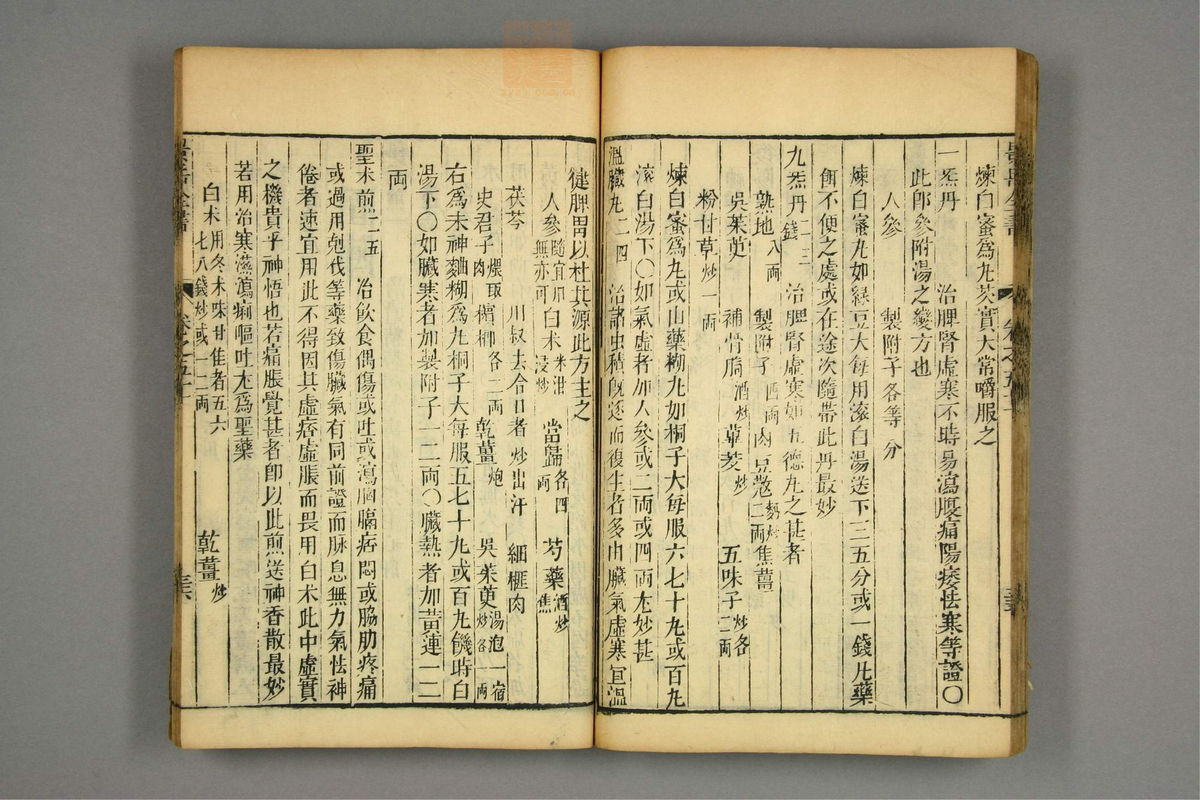 煉白蜜爲丸芡實大常嚼服之
一炁丹　治脾腎虛寒不時易瀉腹痛陽痿怯寒等證〇
此卽參附湯之變方也
人參　製附子各等分
煉白蜜丸如綠豆大每用滚白湯送下三五分或一錢凡藥
餌不便之處或在途次隨帶此丹最妙
九炁丹二三　治脾腎虛寒如五德丸之甚者
熟地八兩　製附子四兩　肉豆蔻二兩麪炒　焦薑
吳茱萸　補骨脂酒炒　蓽茇炒　五味子炒各二兩
粉甘草炒一兩
煉白蜜爲丸或山藥糊丸如桐子大每服六七十丸或百丸
滚白湯下〇如氣虛者加人參或二兩或四兩尤妙甚
溫臟丸二四　治諸虫積旣逐而復生者多由臟氣虛寒宜溫
健脾胃以杜其源此方主之
人參隨宜用無亦可　白术米泔浸炒　當歸各四兩　芍藥酒炒焦
茯苓　川椒去合口者炒出汗　細榧肉
史君子煨取肉　檳榔各二兩　乾薑炮　吳茱萸湯泡一宿炒各一兩
右爲末神麯糊爲丸桐子大每服五七十丸或百丸饑時白
湯下〇如臟寒者加製附子一二兩〇臟熱者加黃連一二
兩
聖术煎二五　治飲食偶傷或吐或瀉胸膈痞悶或脇肋疼痛
或過用剋伐等藥致傷臟氣有同前證而脉息無力氣怯神
倦者速宜用此不得因其虛痞虛脹而畏用白术此中虛實
之機貴乎神悟也若痛脹覺甚者卽以此煎送神香散最妙
若用治寒濕瀉痢嘔吐尤爲聖藥
白术用冬术味甘佳者五六七八錢炒或一二兩　乾薑炒